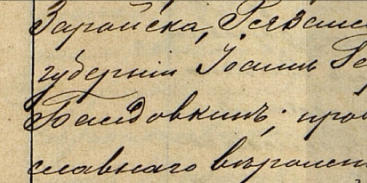 Зарайска, Рязанс
губернiи Iоаннъ Ге
овкинъ; прав
славнаго вѣроиспо